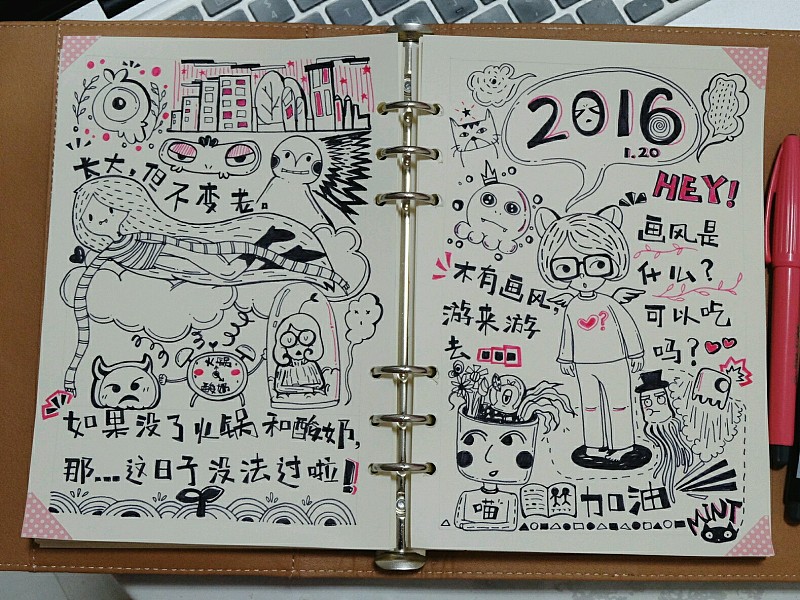 长大,但
不变老。
火锅
酸奶
如果没了火锅和酸奶,
那...这日子没法过啦!
2016
1.20
HEY!
画风是
什么?
可以吃
吗?
木有画风,
游来游
去
?
喵
加油
MINT